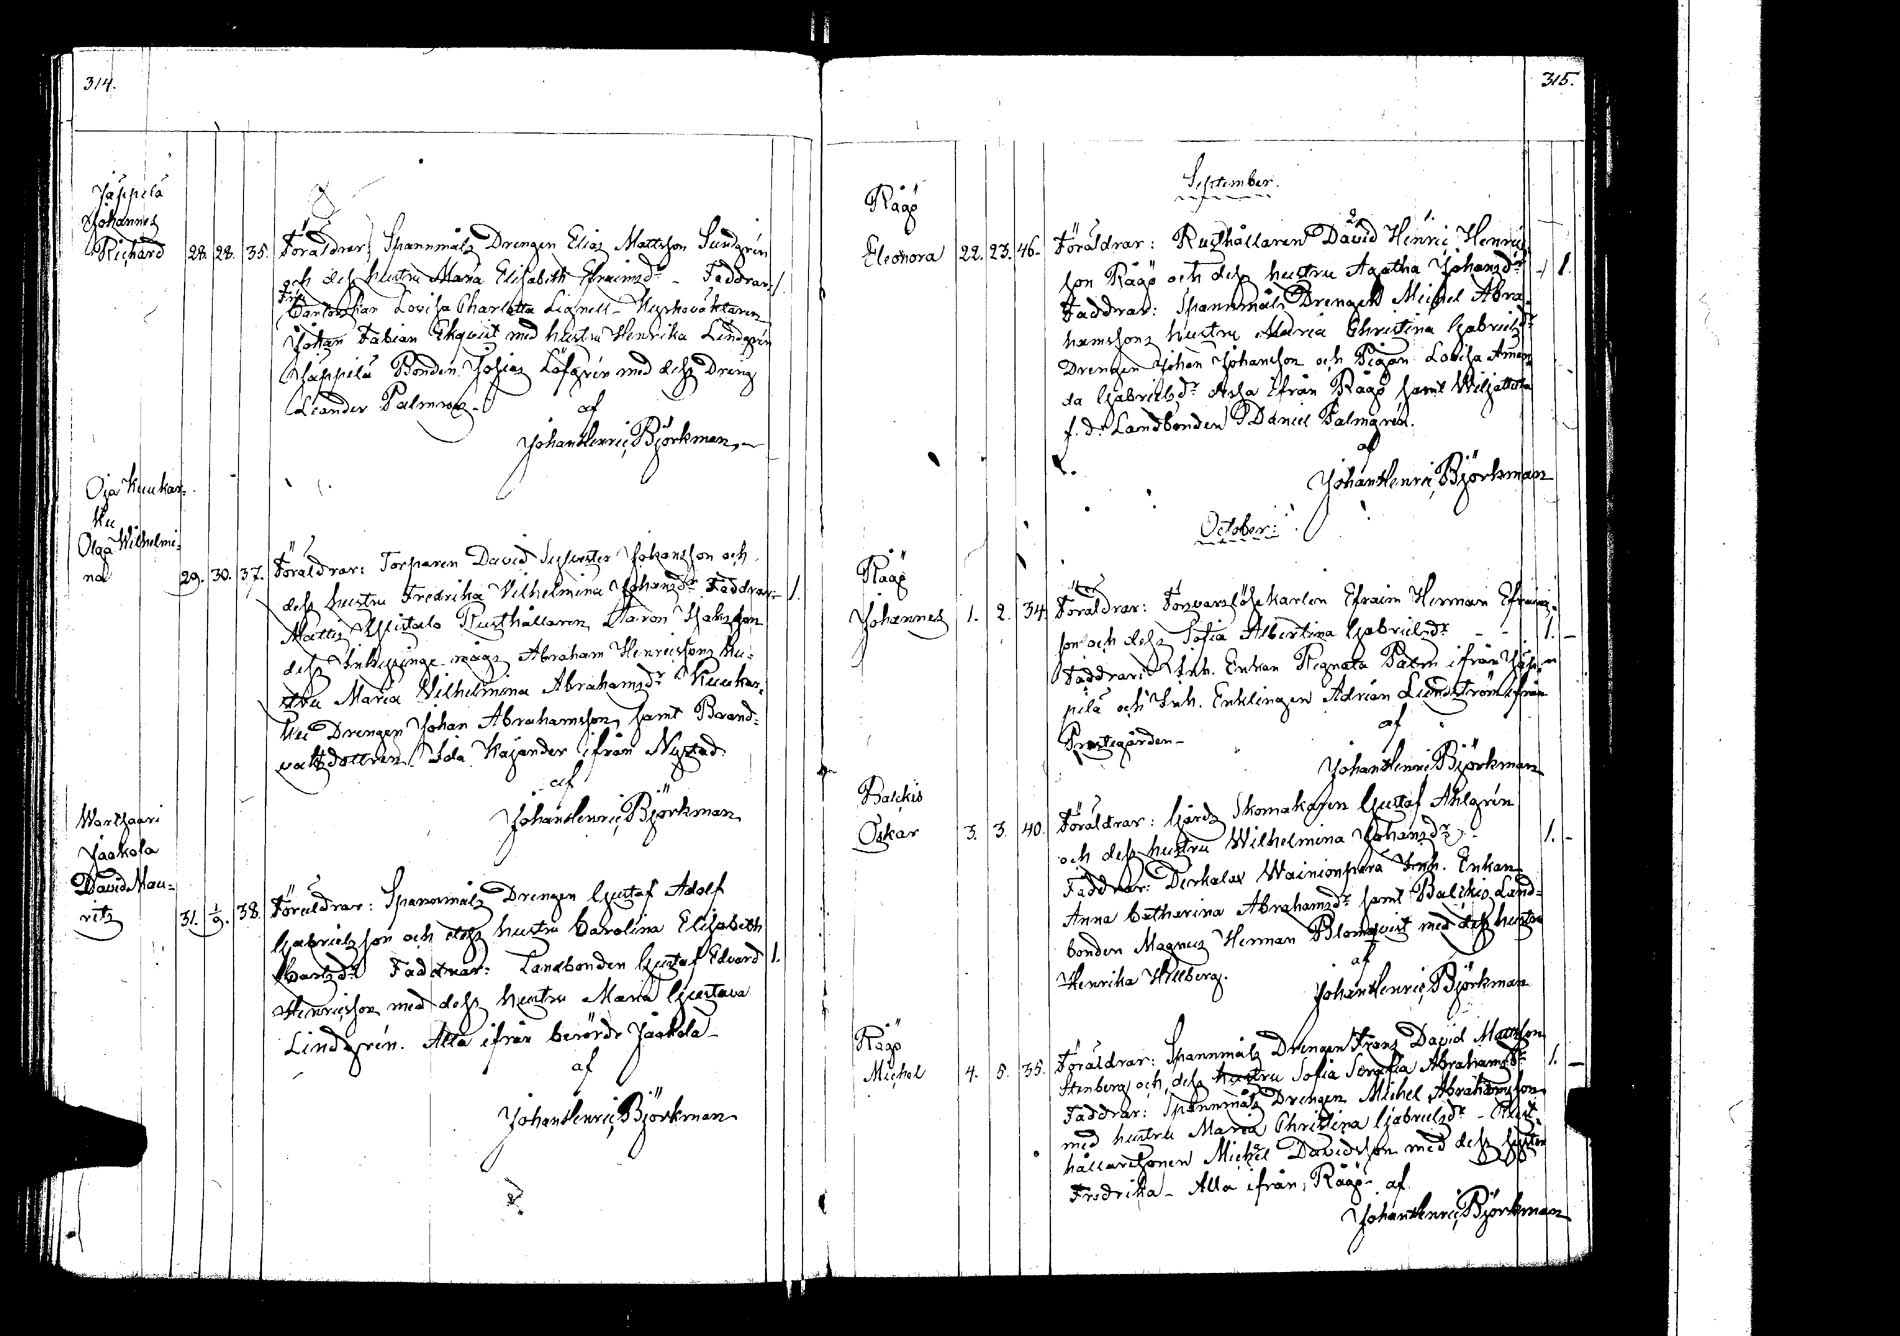 314.
Jäppilä
Johannes
Richard 28. 28. 35. Föräldrar: Spannmåls Drengen Elias Mattsson Sundgrén
och dess hustru Maria Elisabeth Efraimsdr - Faddrar: 1.
Lovisa Charlotta Lignell - Kyrkováktaren
Johan Fabian Ekqvist med hustru Henrika Lindgrén
Jäppilä Bonden Josias Löfgrén med dess Dreng
Leander Palmroos -
af
Johan Henric Björkman.
Oja Kuukar-
ku
Olga Wilhelmi-
na 29. 30. 37. Föräldrar: Torparen David Sylvester Johansson och
dess hustru Fredrika Vilhelmina Johansdr Faddrar: 1.
Mattis Rusthållaren Aaron Isaksson
dess Inhysinge mågs Abraham Henricssons hu-
stru Maria Vilhelmina Abrahamsdr Kuukar-
ku Drengen Johan Abrahamsson, samt Brand-
vaktsdottren Ida Kajander ifrån Nystad.
af
Johan Henric Björkman
Wartsaari
Jaakola
David Mau-
ritz 31. 1/9. 38. Föräldrar: Spannmåls Drengen Gustaf Adolf
Gabrielsson och dess hustru Carolina Elisabeth
Carlsdr Faddrar: Landbonden Gustaf Edvard 1.
Henricsson med dess hustru Maria Gustava
Lindgrén. Alla ifrån berörde Jaakola -
af
Johan Henric Björkman
315.
September.
Rägö
Eleonora 22. 23. 46. Föräldrar: Rusthållaren David Henric Henrics
son Rägö och dess hustru Agatha Johansdr 1.
Faddrar: Spannmåls Drengen Michel Abra-
hamssons hustru Maria Christina Gabrielsdr
Drengen Johan Johansson och Pigan Lovisa Aman-
da Gabrielsdr dessa ifrån Rägö samt
f. d. Landbonden Daniel Palmgrén.
af
Johan Henric Björkman
October:
Rägö
Johannes 1. 2. 34. Föräldrar: Försvarslöse karlen Efraim Herman Efraims-
son och dess Sofia Albertina Gabrielsdr - - 1. -
Faddrar: Inh. Enkan Regnata Palm ifrån Jäp-
pilä och Inh. Enklingen Adrian Lundström ifrån
Prestegården -
af
Johan Henric Björkman
Balckis
Oskar 3. 3. 40. Föräldrar: Gårds Skomakaren Gustaf Ahlgrén
och dess hustru Wilhelmina Johansdr - 1. -
Faddrar: Wainionperä Inh. Enkan
Anna Catharina Abrahamsdr samt Balckis Land-
bonden Magnus Herman Blomqvist med dess hustru
Henrika Hellberg.
af
Johan Henric Björkman
Rägö
Michel 4. 5. 35. Föräldrar: Spannmåls Drengen Frans David Mattsson
Stenberg och dess hustru Sofia Serafia Abrahamsdr 1. -
Faddrar: Spannmåls Drengen Michel Abrahamsson
med hustru Maria Christina Gabrielsdr - Rust-
hållaresonen Michel Davidsson med dess syster
Fredrika - Alla ifrån Rägö - af
Johan Henric Björkman